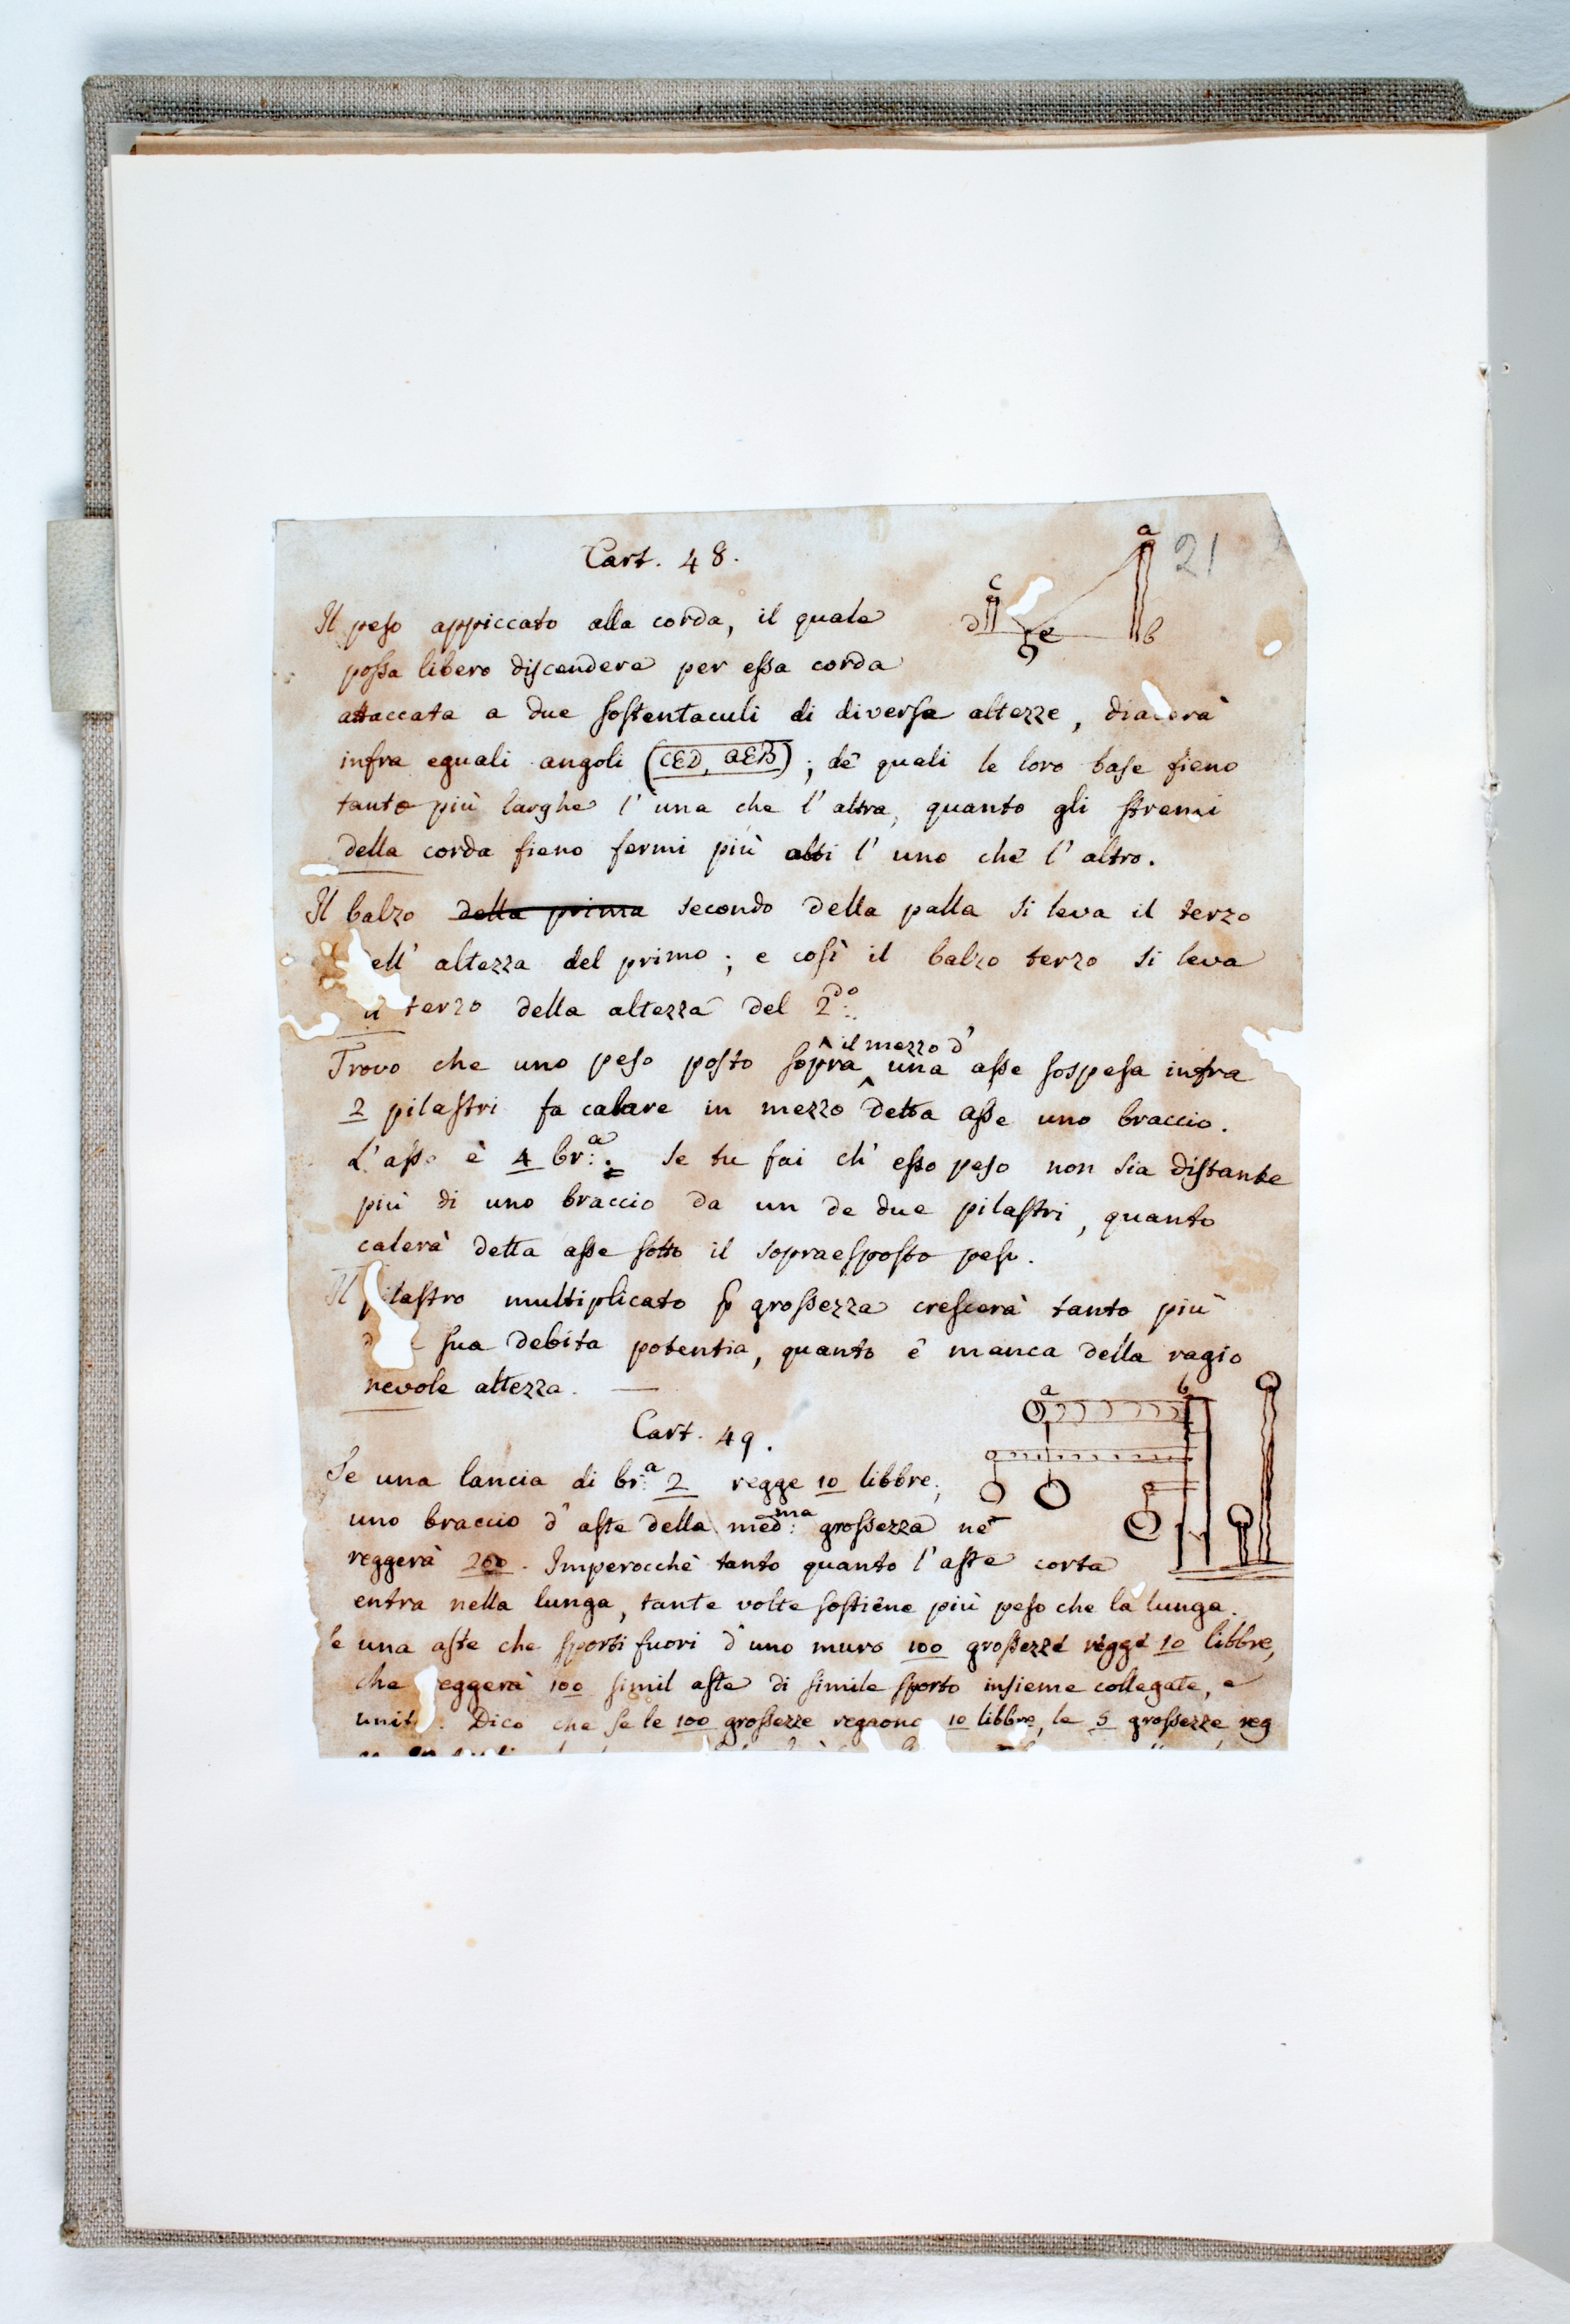 Cart. 48.
21
a
c
d
e
b
Il peso appiccato alla corda, il quale
possa libero discendere per essa corda
attaccata a due sostentaculi di diverse altezze, diacerà
infra eguali angoli (CED, AEB); de' quali le loro base fieno
tanto più larghe l'una che l'altra, quanto gli stremi
della corda fieno fermi più alti l'uno che l'altro.
Il balzo della prima secondo della palla si leva il terzo
ell' altezza del primo; e così il balzo terzo si leva
il terzo della altezza del 2do:
Trovo che uno peso posto sopra il mezzo d' una asse sospesa infra
2 pilastri fa calare in mezzo detta asse uno braccio.
L'asse è 4 br:a. Se tu fai ch' esso peso non sia distante
più di uno braccio da un de due pilastri, quanto
calerà detta asse sotto il sopraesposto peso.
Il pilastro multiplicato p grossezza crescerà tanto più
sua debita potentia, quanto è manca della ragio
nevole altezza.
Cart. 49.
a
b
Se una lancia di br:a 2 regge 10 libbre,
uno braccio d' aste della med:ma grossezza ne
reggerà 200. Imperocchè tanto quanto l'aste corta
entra nella lunga, tante volte sostiene più peso che la lunga.
Se una aste che sporti fuori d'uno muro 100 grossezze regge 10 libbre,
che reggerà 100 simil aste di simile sporto insieme collegate, e
unit. Dico che se le 100 grossezze regaono 10 libbre, le 5 grossezze reg